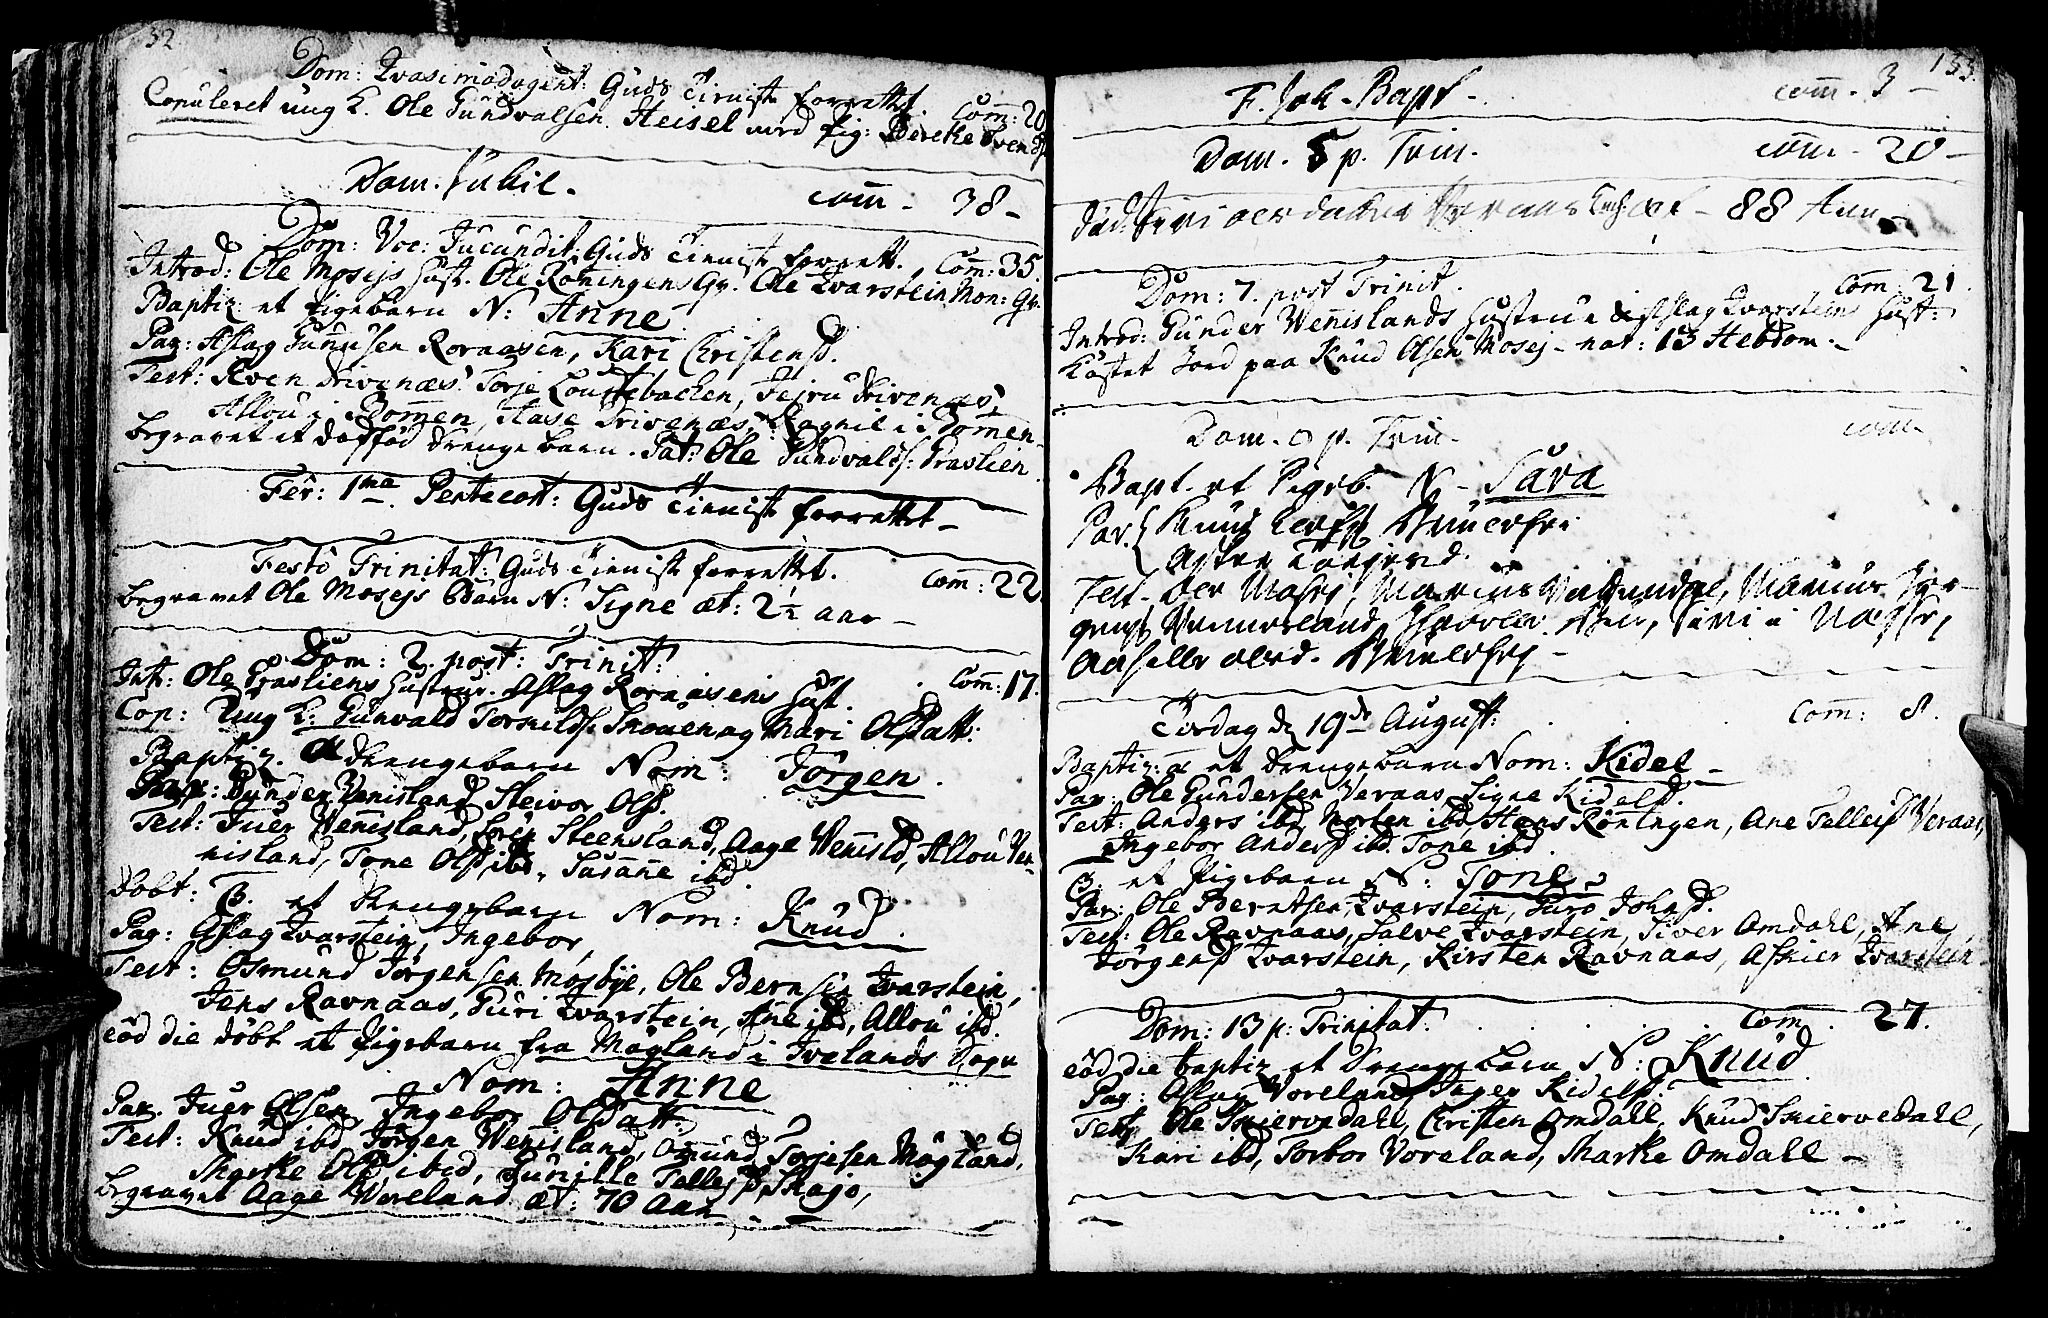 32
Dom: Qvasimodogent: Guds Tieniste forrettet. Com: 20
Copuleret ung K. Ole Gundvalsen Heisel med Pig: Berethe Svend
Dom. Jubil. com - 38 -
Dom: Voc: Jucundit: Guds Tieniste forrett. Com: 35.
Introd: Ole Mosejs Hust. Ole Röningens Qv. Ole Qvarstein Mon: Qv.
Baptiz et Pigebarn N: Anne
Par: Aslag Gunnusen Roraasen, Kari Christensd.
Test: Sven Drivenæs, Torje Loustebacken, Drivenæs,
Allou i Bomen, Aase Drivenæs, Ragnil i Bomen
begravet et dödföd Drengebarn. Pat: Ole Gundvalds: Grastien
Fer: 1ma Pentecost: Guds Tieniste forrettet -
Festo Trinitat: Guds Tieniste forrettet. Com: 22
begravet Ole Mosejs Barn N: Signe æt: 2½ aar -
Dom: 2. post: Trinit:
Int: Ole Grastiens Hustrue. Aslag Roraasens Hust. Com: 17.
Cop: Ung K: Gunvald Torkilds: og Mari Olsdatt:
Baptiz. et Drengebarn Nom: Jörgen.
Par: Gunder Venisland, Steivor Olsd.
Test: Juer Wenisland, Sören Steensland, Aage Wenisld, Allou Ven-
nisland, Tone Olsd ibd, Susanne ibd.
Döbt: B. et Drengebarn Nom: Knud.
Par: Aslag Qvarstein, Ingebor,
Test: Osmund Jörgensen Mosböje, Ole Bernsen Qvarstein,
Jens Ravnaas, Guri Qvarstein, Ane ibd, Allou ibd.
eod die döbt et Pigebarn fra Mögland i Ivelands Sogn
Nom: Anne
Par. Juer Olsen, Ingebor Olsdatt:
Test: Knud ibd, Jörgen Wenisland, Omund Torjesen Mögland,
Marke Olsd ibid, Gunille Tellefsd Skajo,
begravet Aage Woreland æt: 70 Aar
133.
F. Joh. Bapt. com. 3 -
Dom. 5 p. Trin. com - 20 -
Död Siri Veraas æt - 88 Ann
Dom: 7. post Trinit. Com: 21.
Introd: Gunder Wenislands Hustrue Aslag Qvarsteins Hust:
Kastet Jord paa Knud Olsen Mosej - nat: 13 Hebdom. -
Dom. 9 p. Trin. com
Bapt. et Pigeb. N - Sara
Par.
Test. Mosej, Marius
Siri i
Tirsdag d 19de August: Com: 8.
Baptiz: et Drengebarn Nom: Kidel -
Par: Ole Gundersen Veraas, Signe Kidelsd.
Test: Anders ibd, Morten ibd, Hans Röningen, Ane Tellefsd Veraas,
Ingebor Andersd ibd. Tone ibd.
B: et Pigebarn N: Tone
Par: Ole Berntsen Qvarstein, Guro Johnsd.
Test: Ole Ravnaas, Salve Qvarstein, Siver Omdahl, Ane
Jörgensd Qvarstein, Kirsten Ravnaas, Asbier Qvarstein
Dom: 13 p: Trinitat: Com. 27.
eod die baptiz et Drengebarn N: Knud
Par: Aslag Voreland, Inger Kidelsd.
Test: Ole Skiervedahl, Christen Omdahl, Knud Skiervedahl,
Kari ibd, Torbor Voreland, Marke Omdahl -